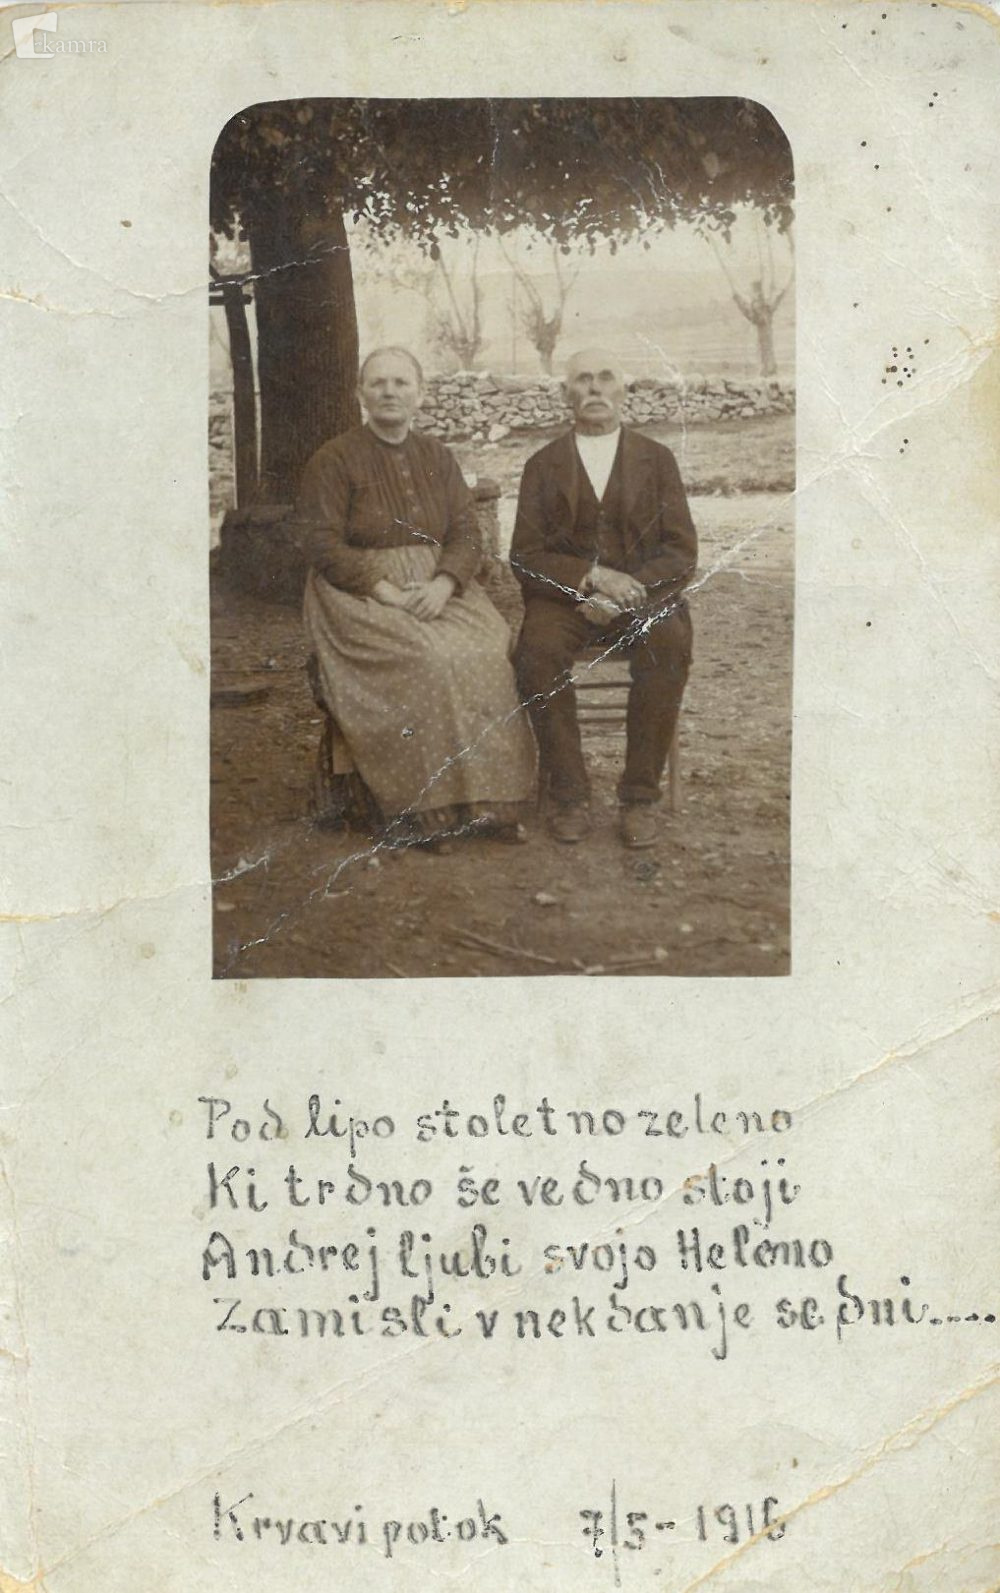 kamra
Pod lipo stoletno zeleno
Ki trdno še vedno stoji
Andrej ljubi svojo Heleno
Zamisli v nekdanje se dni.....
Krvavi potok 7/5-1916